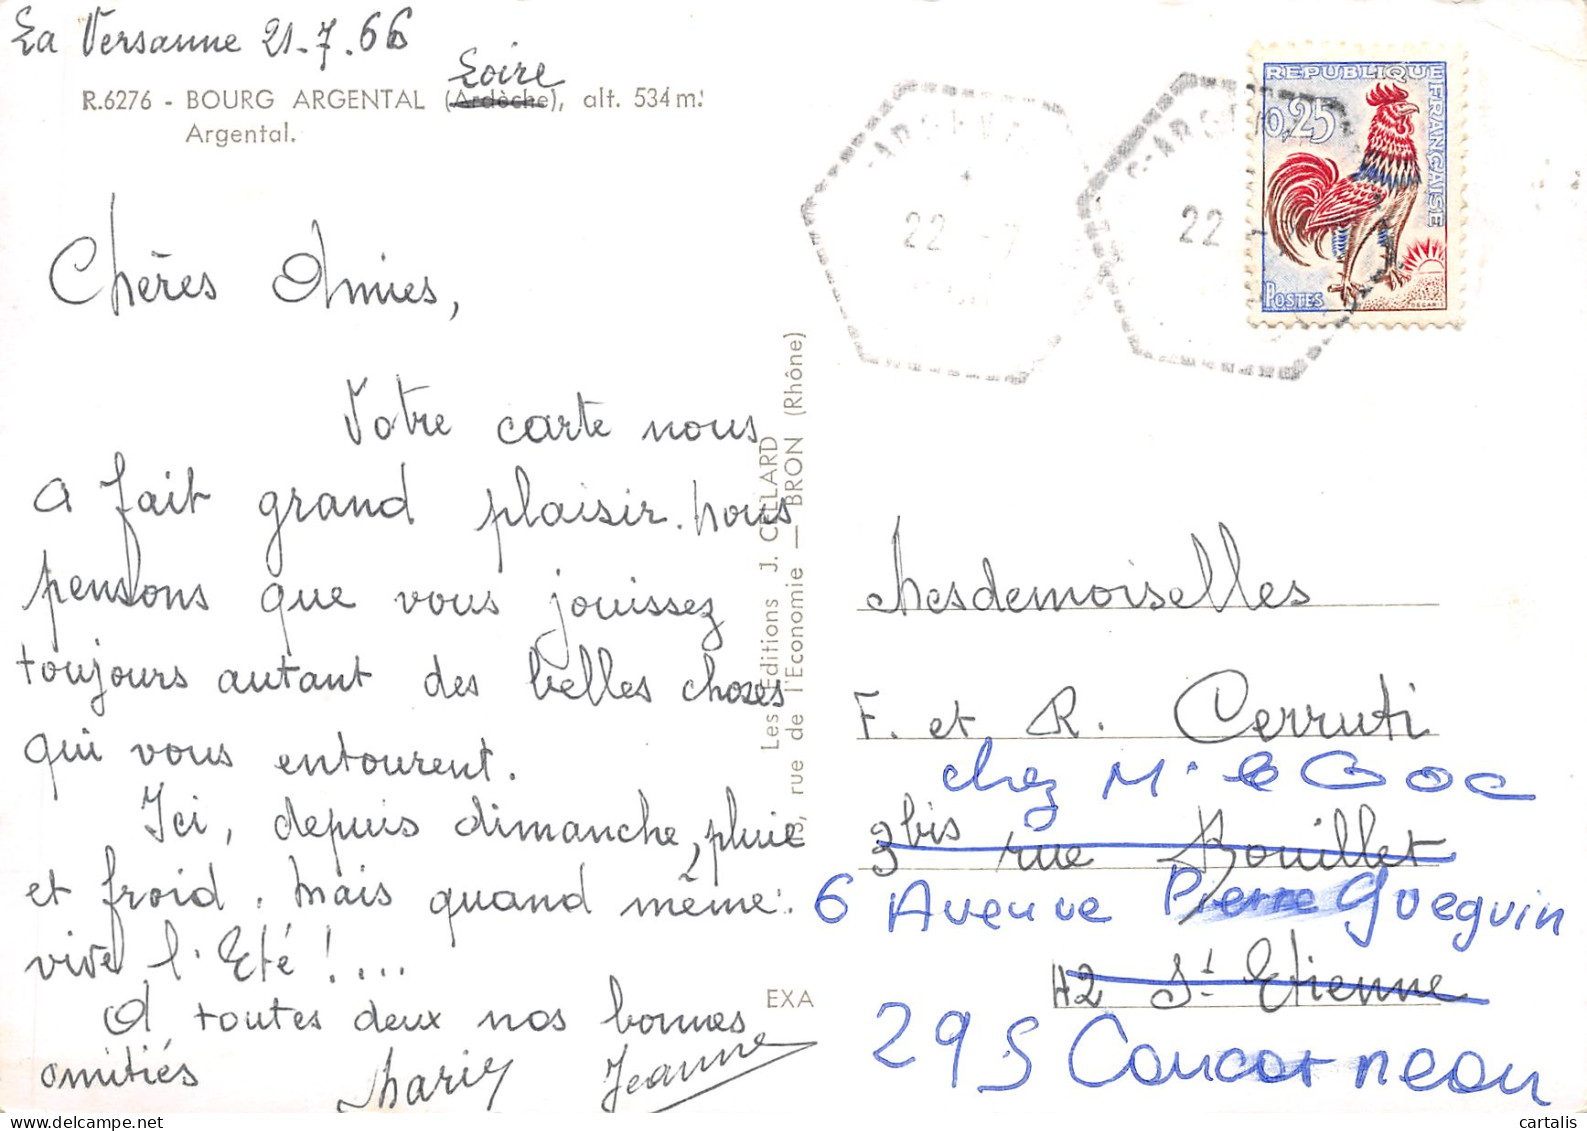 La Versanne 21-7.66
Loire
R.6276 - BOURG ARGENTAL (Ardèche), alt. 534 m.
Argental.
Chères Amies,
Votre carte nous
a fait grand plaisir. Nous
pensons que vous jouissez
toujours autant des belles choses
qui vous entourent.
Ici, depuis dimanche, pluie
et froid. Mais quand même :
vive l'Eté !...
A toutes deux nos bonnes
amitiés
Jeanne
Les Editions J. CELLARD
rue de l'Economie — BRON (Rhône)
EXA
22 -7
22
REPUBLIQUE FRANÇAISE
0,25
POSTES
DECARIS
Mesdemoiselles
F. et R. Cerruti
chez Mr le Goc
3bis rue Bouillet
6 Avenue Pierre Gueguin
42 St Etienne
29 S Concarneau
cartalis